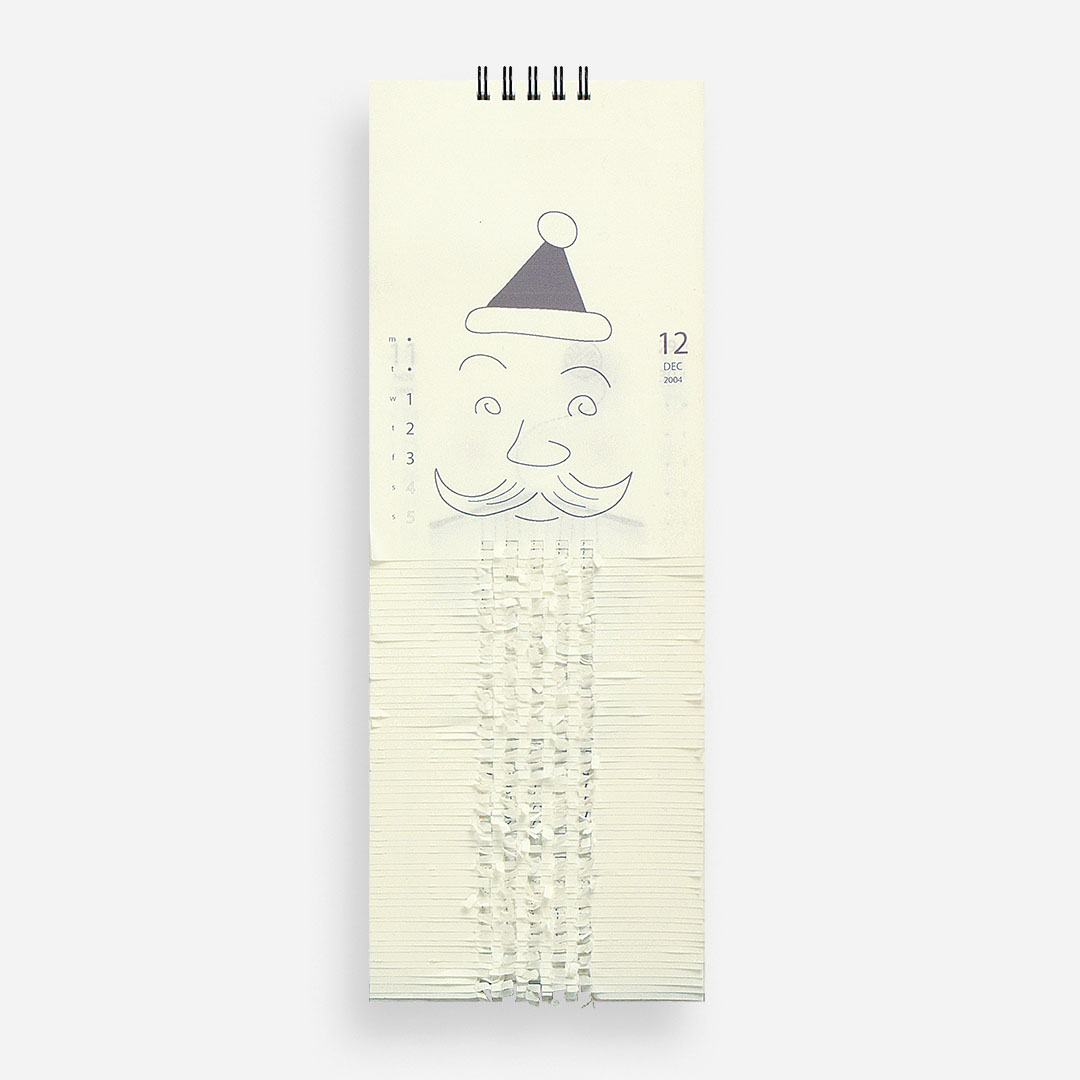 m •
t •
w 1
t 2
f 3
s 4
s 5
12
DEC
2004